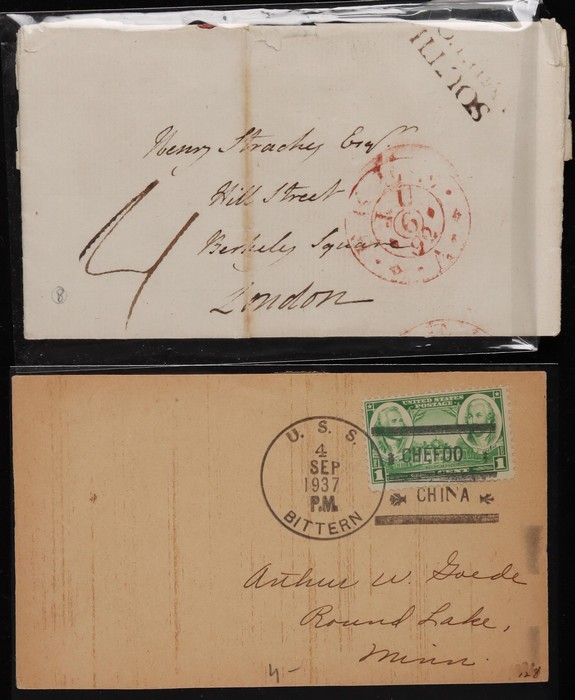 Henry Strachey Esqr.
Hill Street
Berkeley Square
London
4
8
U.S.S.
4
SEP
1937
P.M.
BITTERN
UNITED STATES
POSTAGE
1
1
CHEFOO
CHINA
Arthur W. Goede
Round Lake,
Minn.
4-